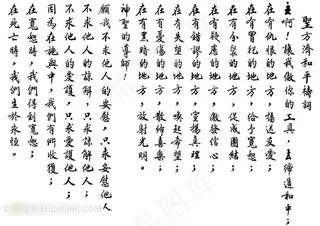 聖方濟和平禱詞
主啊!讓我做你的工具,去締造和平;
在有仇恨的地方,播送友愛;
在有冒犯的地方,給予寬恕;
在有分裂的地方,促成團結;
在有疑慮的地方,激發信心;
在有錯謬的地方,宣揚真理;
在有失望的地方,喚起希望;
在有憂傷的地方,散佈喜樂;
在有黑暗的地方,放射光明。
神聖的導師!
願我不求他人的安慰,只求安慰他人
不求他人的諒解,只求諒解他人;
不求他人的愛護,只求愛護他人;
因為在施與中,我們有所收穫;
在寬恕時,我們得到寬恕;
在死亡時,我們生於永恆。